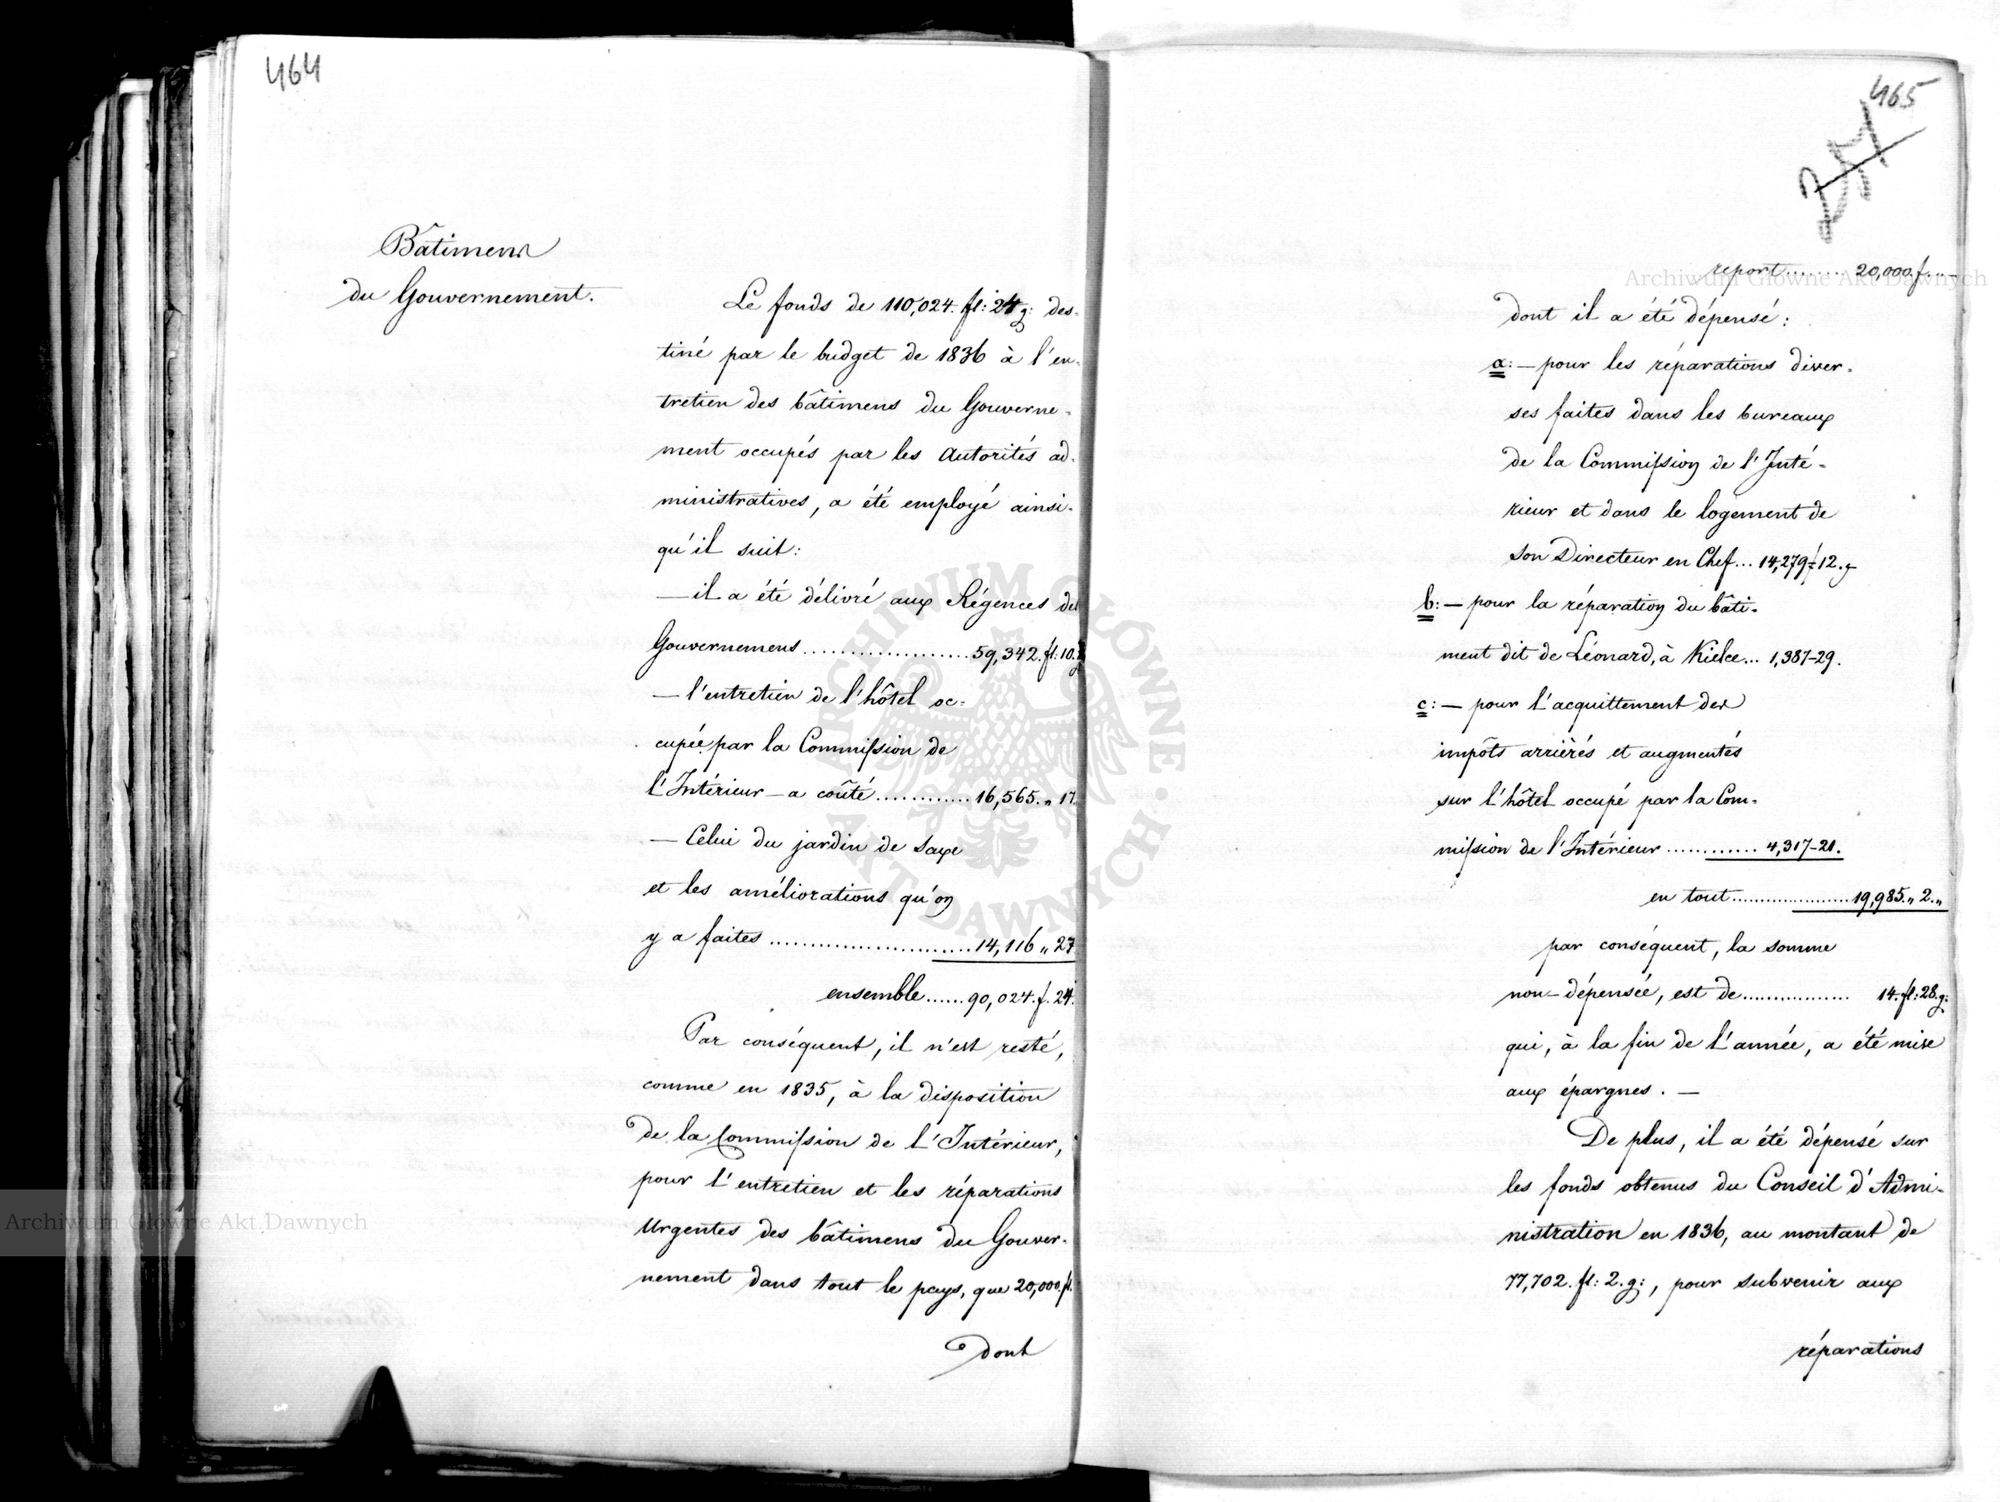 464
Bâtimens
du Gouvernement.
Le fonds de 110,024. fl: 24 g: des-
tiné par le budget de 1836 à l'en-
tretien des bâtimens du Gouverne-
ment occupés par les autorités ad-
ministratives, a été employé ainsi-
qu'il suit:
— il a été délivré aux Régences des
Gouvernemens .................... 59,342. fl: 10. g
— l'entretien de l'hôtel oc-
cupée par la Commission de
l'Intérieur — a coûté ............ 16,565. „ 17.
— Celui du jardin de Saxe
et les améliorations qu'on
y a faites ........................ 14,116 „ 27
ensemble ...... 90,024. f. 24.
Par conséquent, il n'est resté,
comme en 1835, à la disposition
de la Commission de l'Intérieur,
pour l'entretien et les réparations
urgentes des bâtimens du Gouver-
nement dans tout le pays, que 20,000. fl.
dont
465
report ........ 20,000. f. ... —
dont il a été dépensé:
a: — pour les réparations diver-
ses faites dans les bureaux
de la Commission de l'Inté-
rieur et dans le logement de
son Directeur en Chef ... 14,279 f 12. g
b: — pour la réparation du bâti-
ment dit de Léonard, à Kielce ... 1,387-29.
c: — pour l'acquittement des
impôts arriérés et augmentés
sur l'hôtel occupé par la Com-
mission de l'Intérieur ............ 4,317-21.
en tout ..................... 19,985. „ 2. „
par conséquent, la somme
non-dépensée, est de ................ 14. fl: 28. g:
qui, à la fin de l'année, a été mise
aux épargnes. —
De plus, il a été dépensé sur
les fonds obtenus du Conseil d'Admi-
nistration en 1836, au montant de
77,702. fl: 2. g:, pour subvenir aux
réparations
Archiwum Główne Akt Dawnych
Archiwum Główne Akt Dawnych
ARCHIWUM GŁÓWNE AKT DAWNYCH